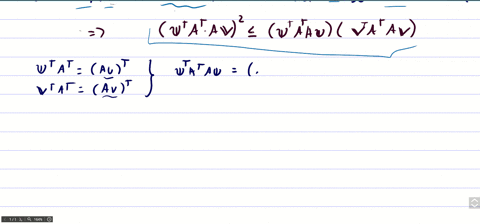 => (u^T A^T · A v)^2 ≤ (u^T A^T A u) ( v^T A^T A v)
u^T A^T = (A u)^T } u^T A^T A u = (.
v^T A^T = (A v)^T